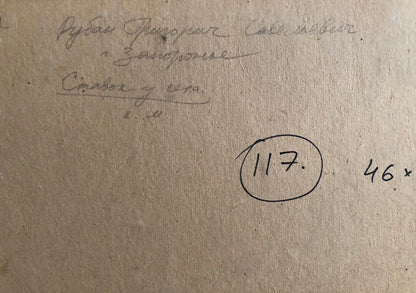 Рубан Григорич Савельевич
г. Запорожье
Ставок у села.
х. м
117.
46 ×